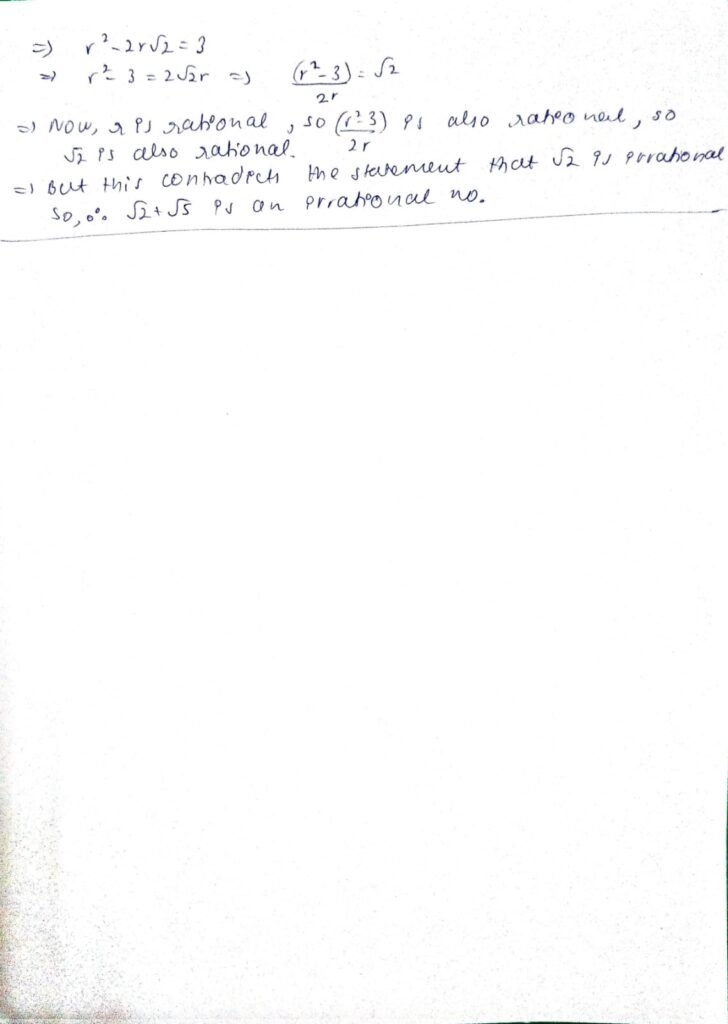 =) r² - 2r√2 = 3
=) r² - 3 = 2√2r =) (r² - 3)/2r = √2
=) Now, r is rational, so (r² - 3)/2r is also rational, so
√2 is also rational.
=) But this contradicts the statement that √2 is irrational
So, ∴ √2 + √5 is an irrational no.